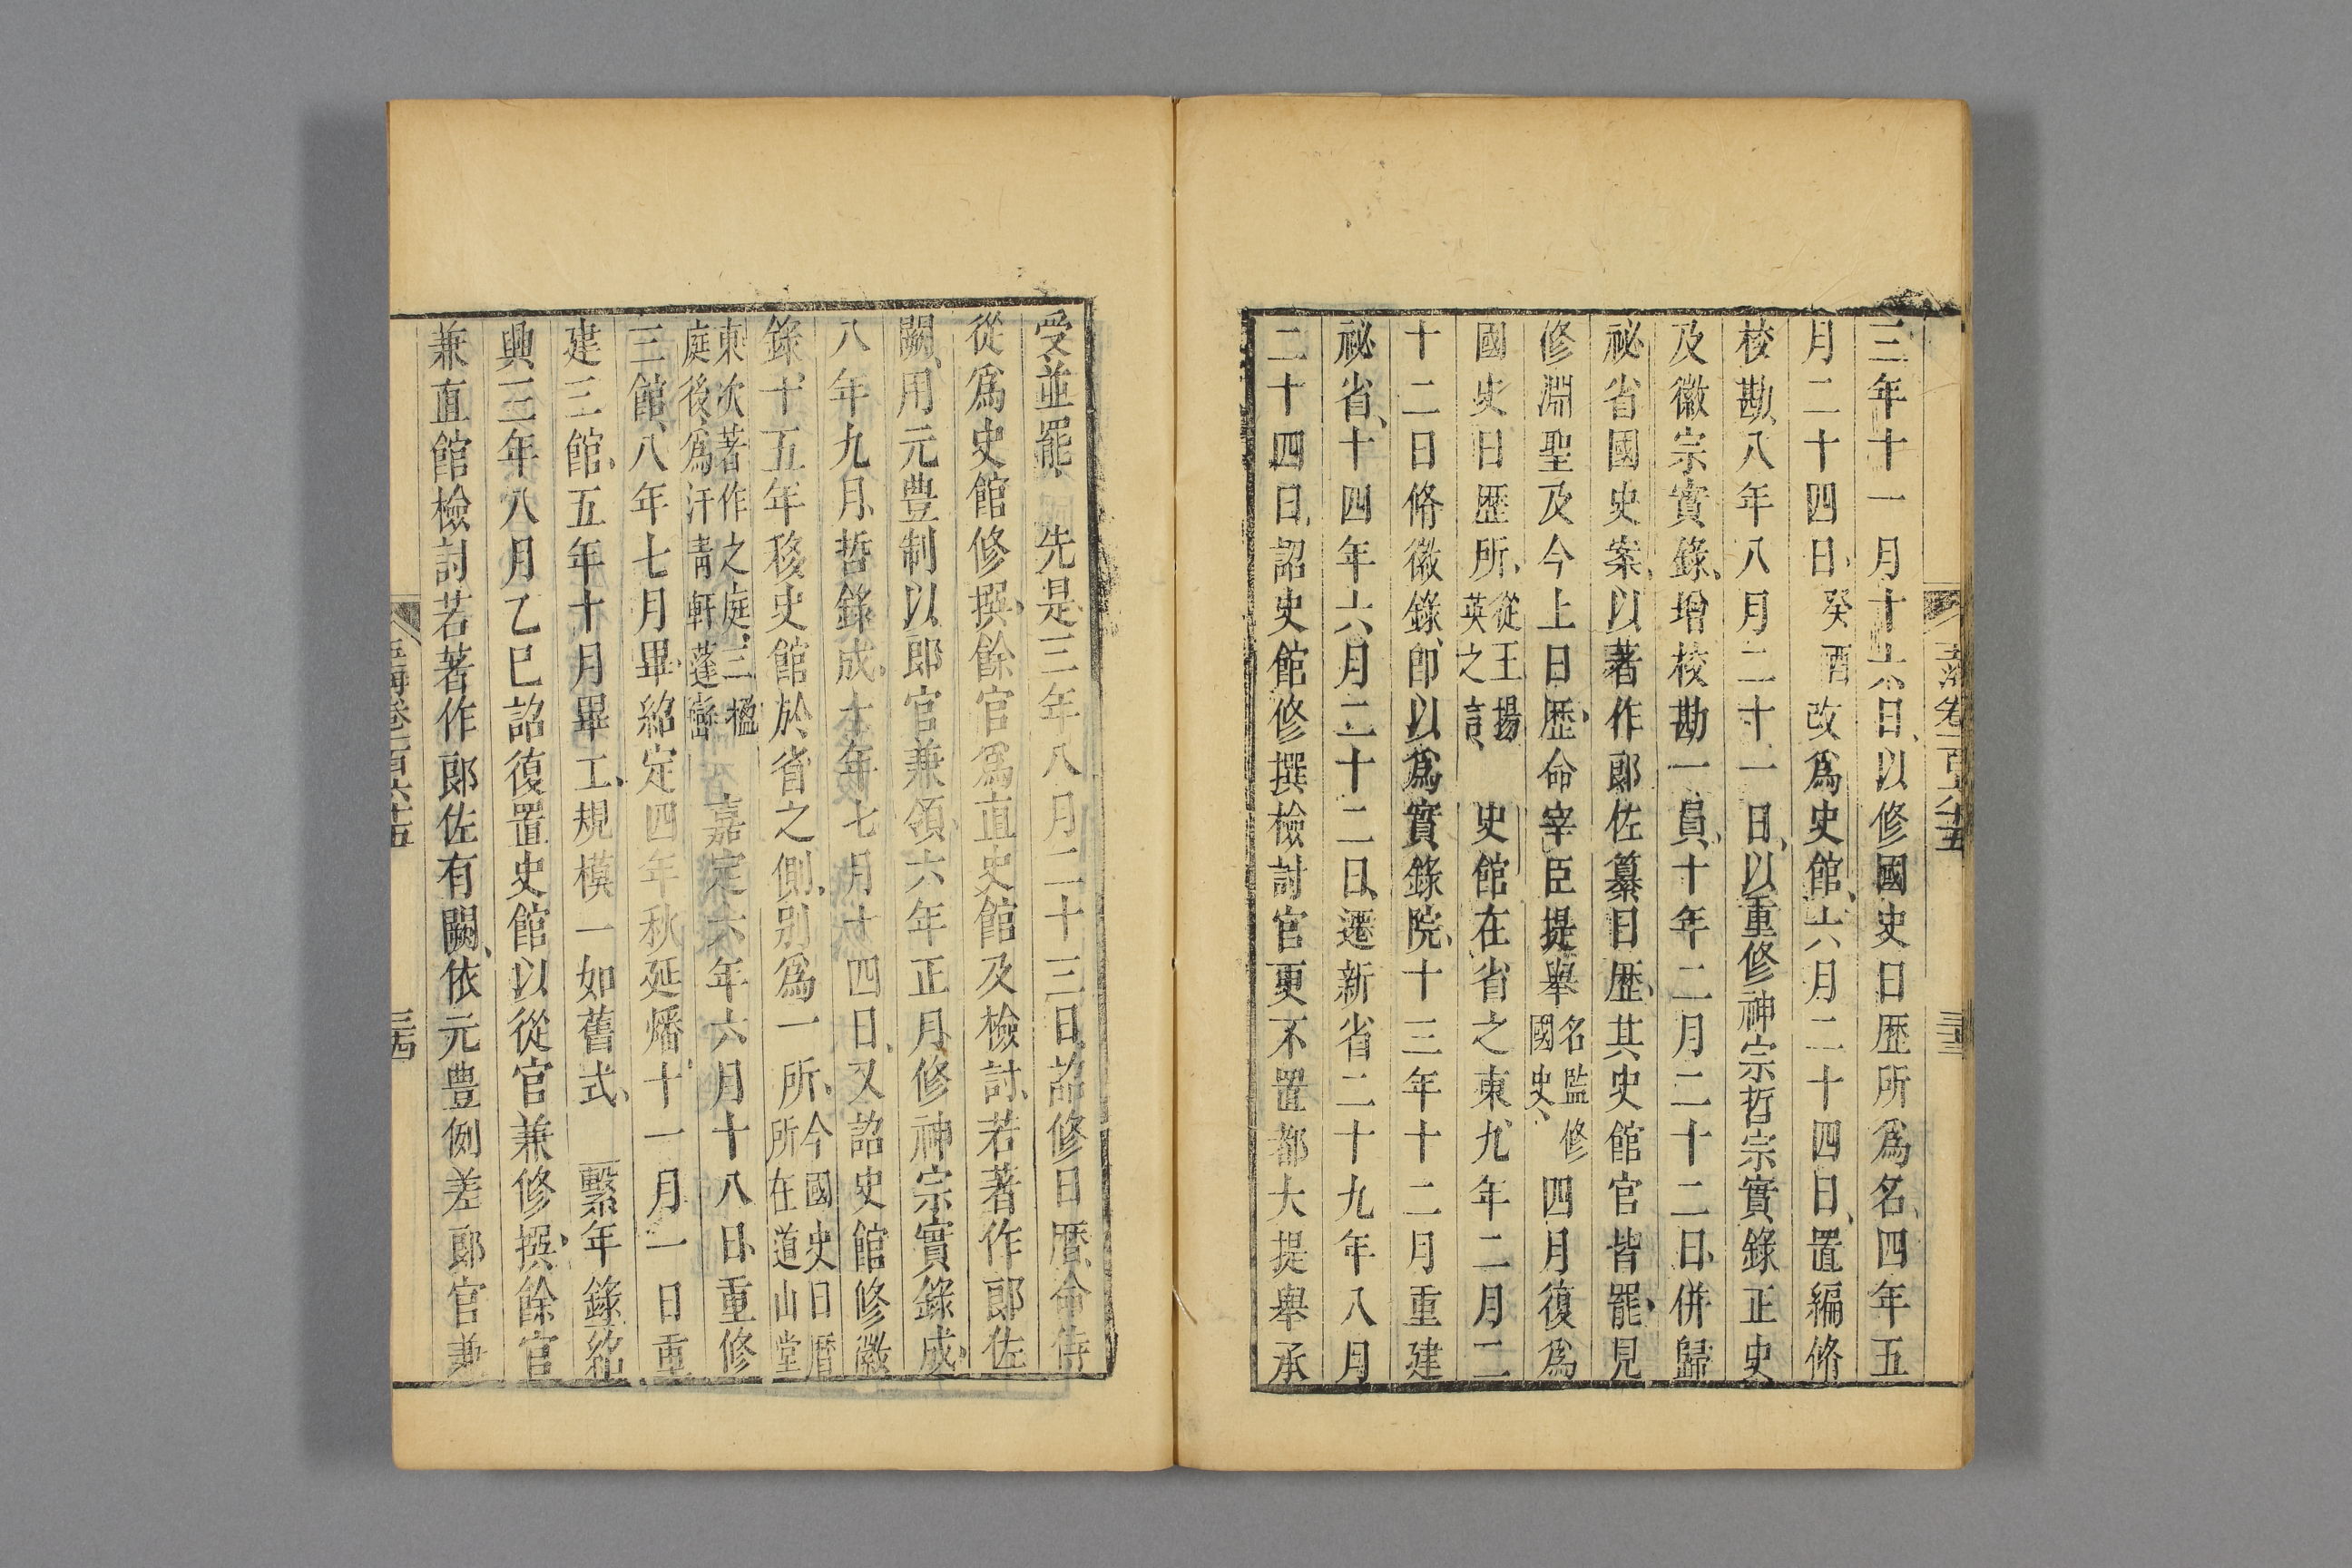 三年十一月十六日以修國史日歷所為名四年五
月二十四日癸酉改為史館六月二十四日置編脩
校勘八年八月二十一日以重修神宗哲宗實錄正史
及徽宗實錄增校勘一員十年二月二十二日併歸
祕省國史案以著作郎佐纂日歷其史館官皆罷見
修淵聖及今上日歷命宰臣提舉名監修國史四月復為
國史日歷所從王揚英之言史館在省之東九年二月二
十二日脩徽錄即以為實錄院十三年十二月重建
祕省十四年六月二十二日遷新省二十九年八月
二十四日詔史館修撰檢討官更不置都大提舉承
受並罷先是三年八月二十三日詔修日曆命侍
從為史館修撰餘官為直史館及檢討若著作郎佐
闕用元豊制以郎官兼領六年正月修神宗實錄成
八年九月哲錄成十年七月十四日又詔史館修徽
錄十五年移史館於省之側別為一所今國史日曆所在道山堂
東次著作之庭三楹庭後為汗青軒蓬巒嘉定六年六月十八日重修
三館八年七月畢紹定四年秋延燔十一月一日重
建三館五年十月畢工規模一如舊式繫年錄紹
興三年八月乙巳詔復置史館以從官兼修撰餘官
兼直館檢討若著作郎佐有闕依元豊例差郎官兼
玉海卷二百六十五
三四